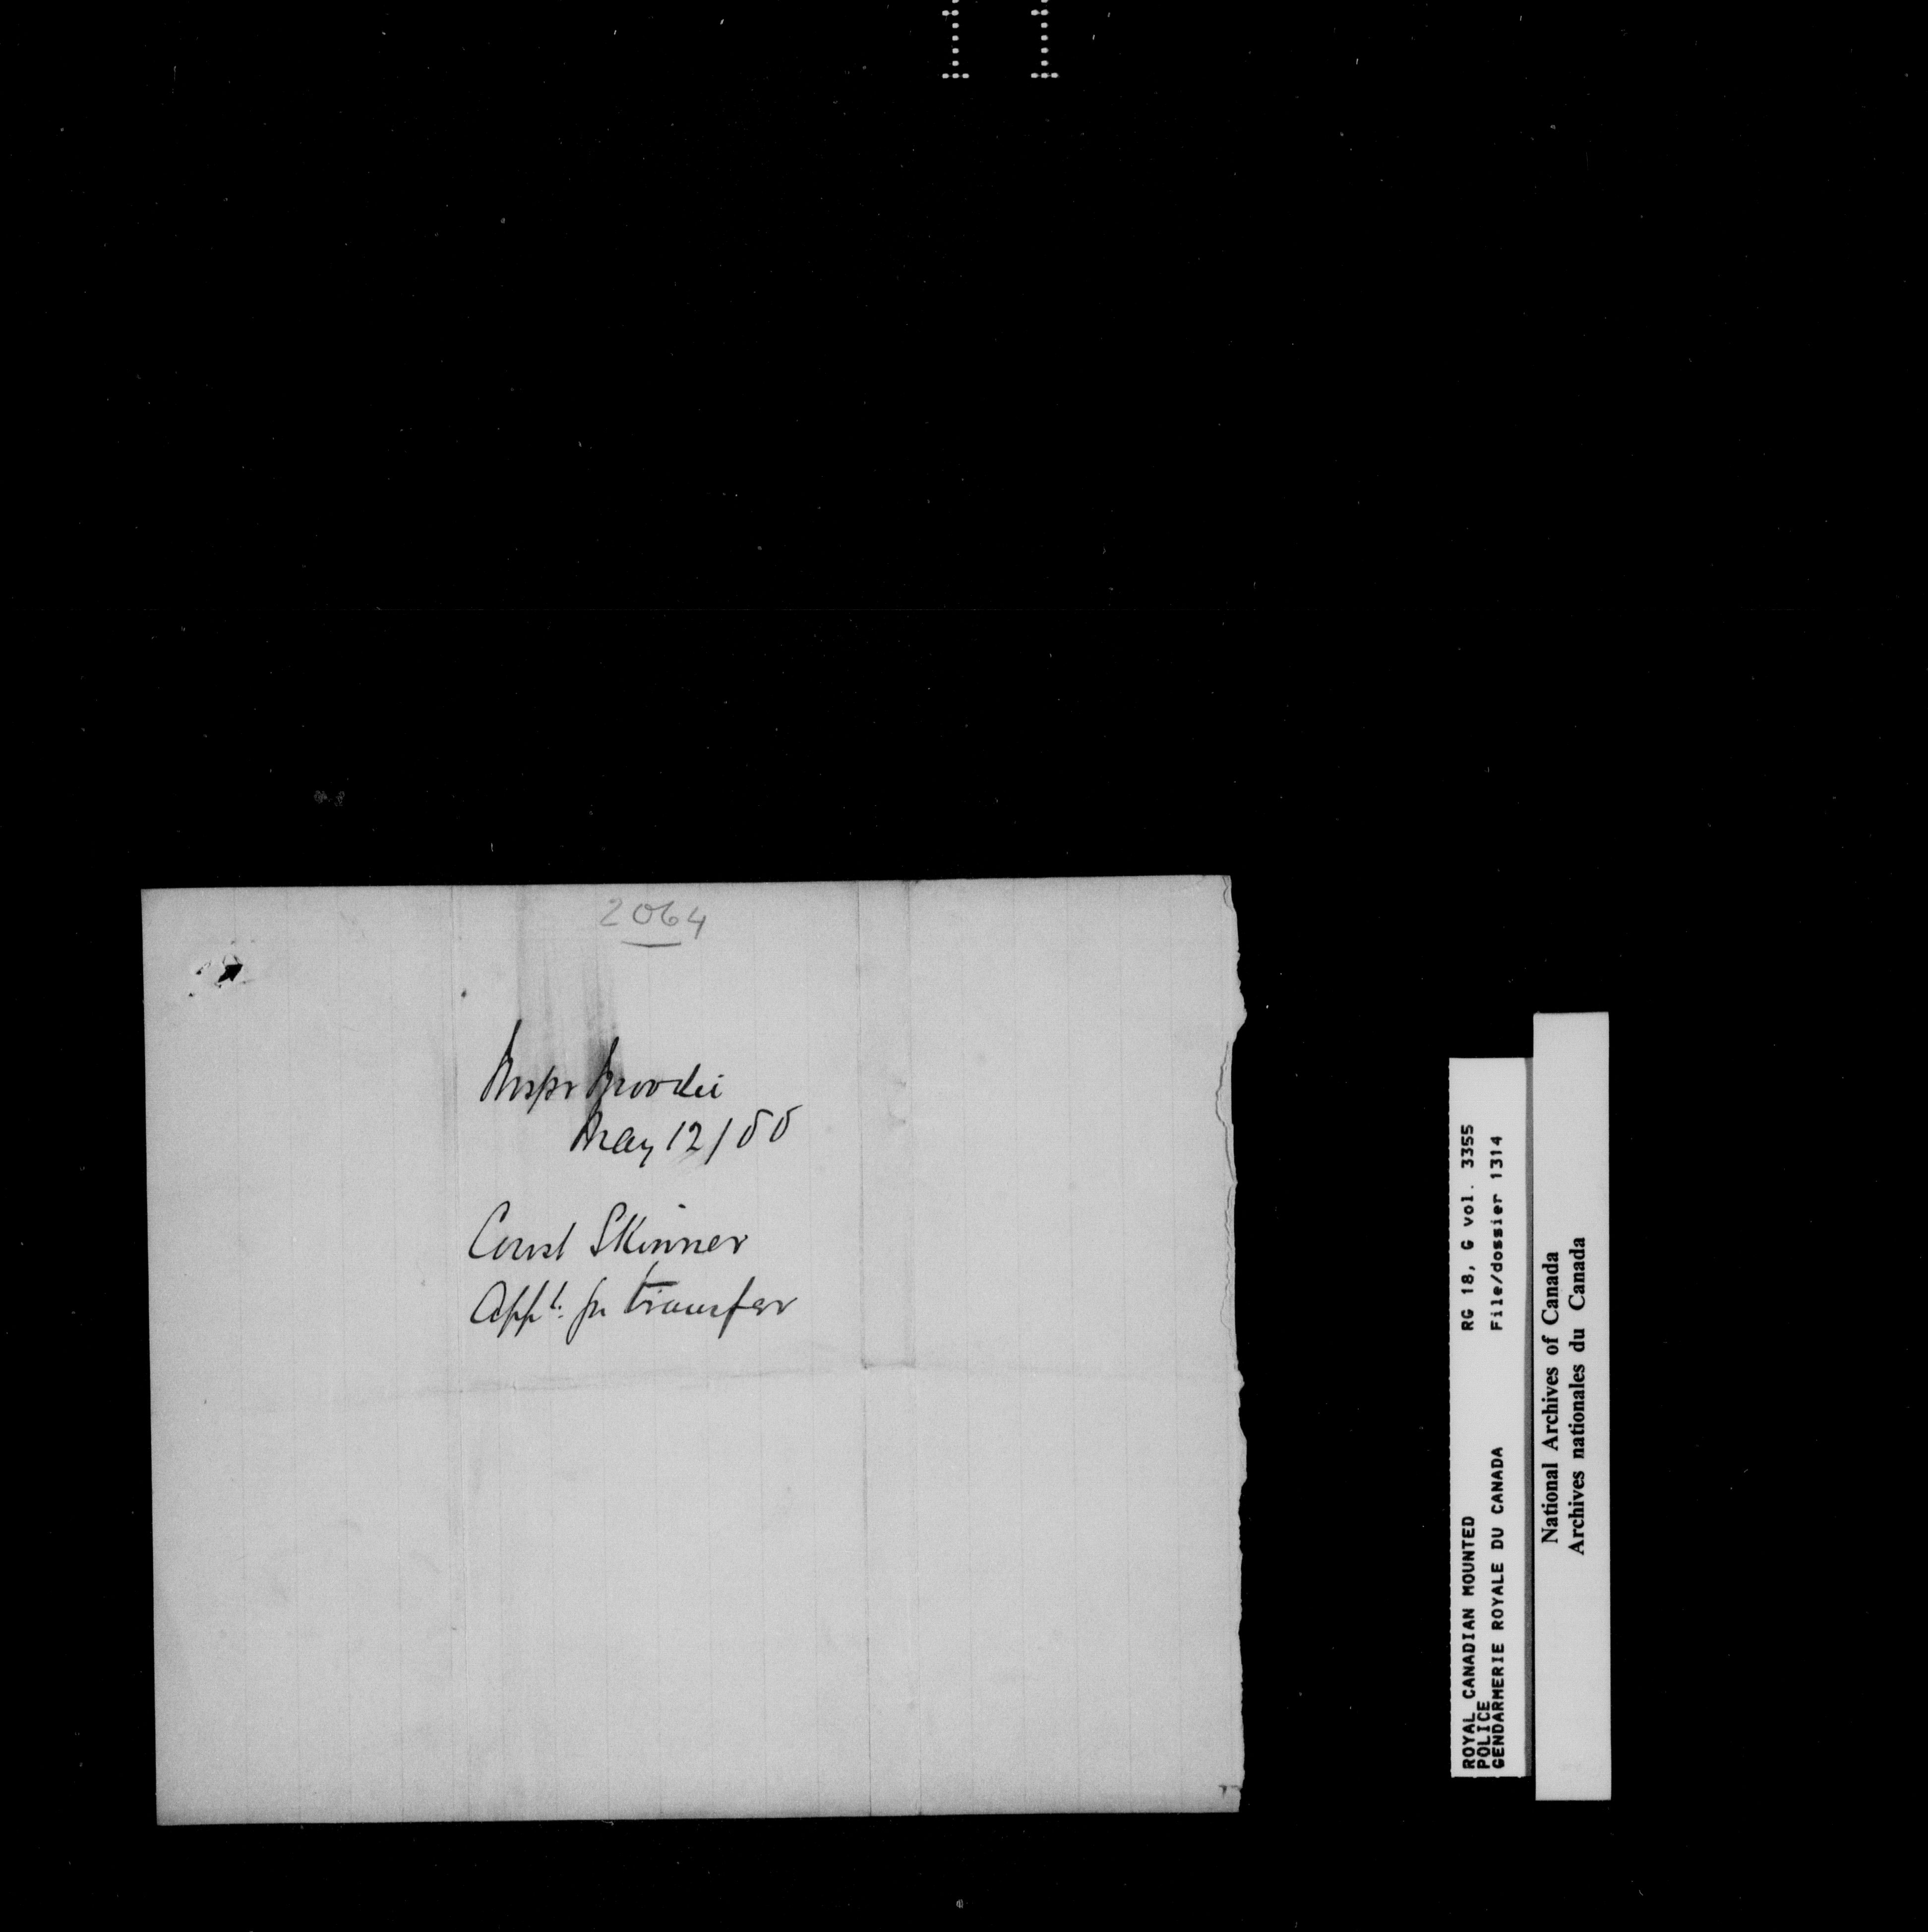 2064
Inspr Moodie
May 12/88
Const Skinner
Appl. for transfer
ROYAL CANADIAN MOUNTED
POLICE
GENDARMERIE ROYALE DU CANADA
RG 18, G vol. 3355
File/dossier 1314
National Archives of Canada
Archives nationales du Canada